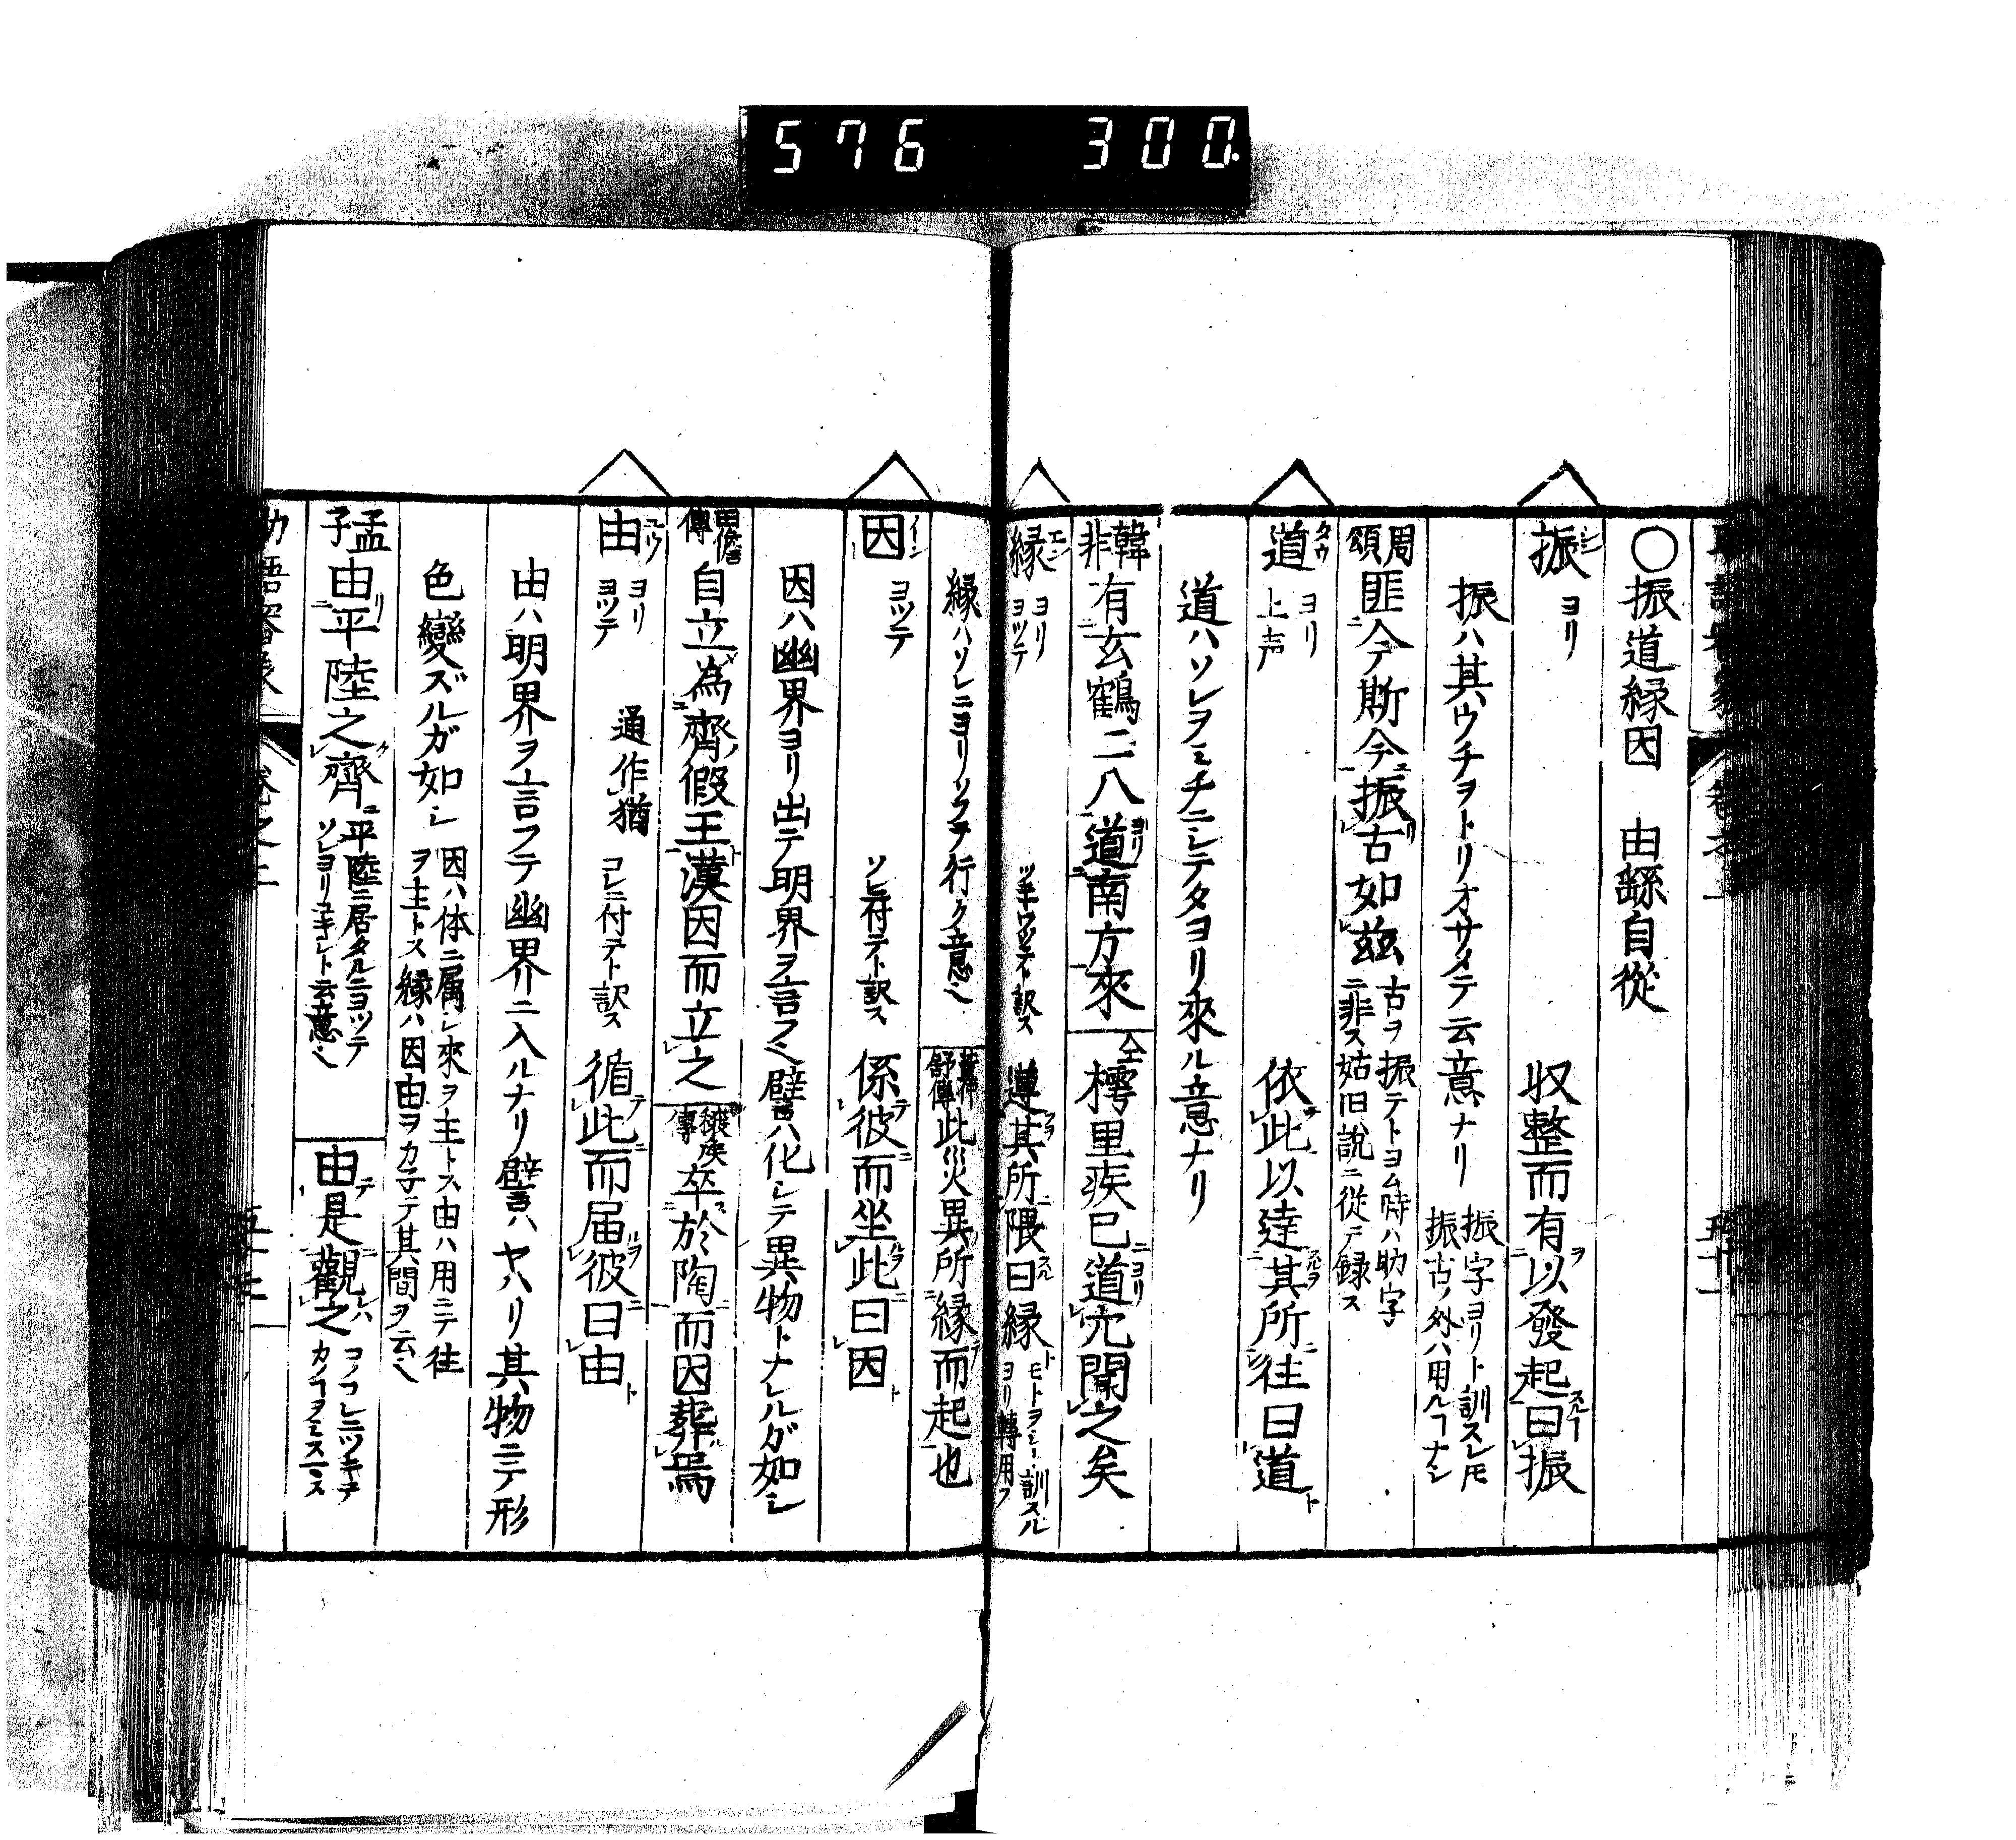 576 300.
〇振道縁因 由繇自從
振シン ヨリ 収整而有以發起曰振
振ハ其ウチヲトリオサメテ云意ナリ 振字ヨリト訓スレ𪜈
振古ノ外ハ用ルヿナシ
周頌 匪今斯今振古如茲 古ヲ振テトヨム時ハ助字
ニ非ス姑旧説ニ從テ録ス
道タウ ヨリ 上声 依此以達其所往曰道
道ハソレヲミチニシテタヨリ來ル意ナリ
韓非 有玄鶴二八道南方來 仝 樗里疾已道穴聞之矣
縁エン ヨリ ヨツテ 遵其所隈曰縁
縁ハソレニヨリソフテ行ク意也 此災異所縁而起也
因イン ヨツテ ソレニ付テト訳ス 係彼而坐此曰因
因ハ幽界ヨリ出テ明界ヲ言フ也譬ハ化シテ異物トナレルガ如シ
田儋傳 自立為齊假王漢因而立之 穰侯傳 卒於陶而因葬焉
由ユウ ヨリ ヨツテ 通作猶 コレニ付テト訳ス 循此而届彼曰由
由ハ明界ヲ言フテ幽界ニ入ルナリ譬ハヤハリ其物ニテ形
色變ズルガ如シ 因ハ体ニ属シ來ヲ主トス由ハ用ニテ往
ヲ主トス縁ハ因由ヲカ子テ其間ヲ云也
孟子 由平陸之齊 平陸ニ居タルニヨツテ
ソレヨリユキシト云意也
由是觀之